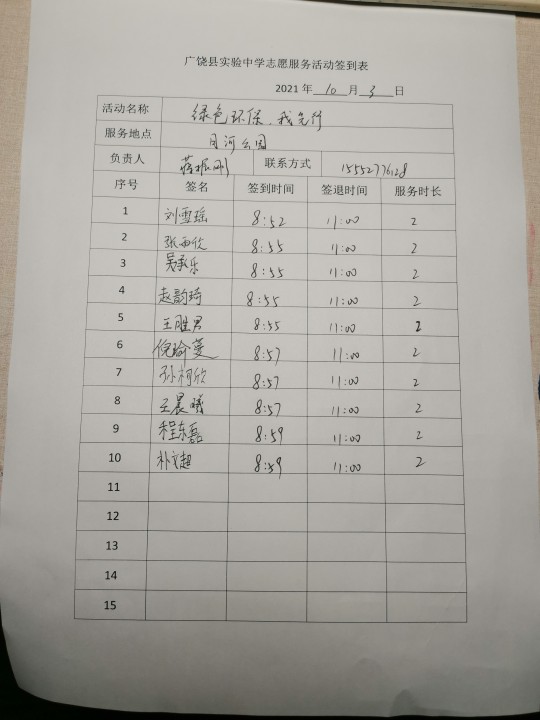 广饶县实验中学志愿服务活动签到表
2021 年 10 月 3 日
活动名称 绿色环保,我先行
服务地点 月河公园
负责人 蒋振刚 联系方式 15552776128
序号 签名 签到时间 签退时间 服务时长
1 刘雪瑶 8:52 11:00 2
2 张雨欣 8:55 11:00 2
3 吴承乐 8:55 11:00 2
4 赵韵琦 8:55 11:00 2
5 王胜男 8:55 11:00 2
6 倪瑜蔓 8:57 11:00 2
7 孙柯欣 8:57 11:00 2
8 王晨曦 8:57 11:00 2
9 程东磊 8:59 11:00 2
10 朴文超 8:59 11:00 2
11
12
13
14
15